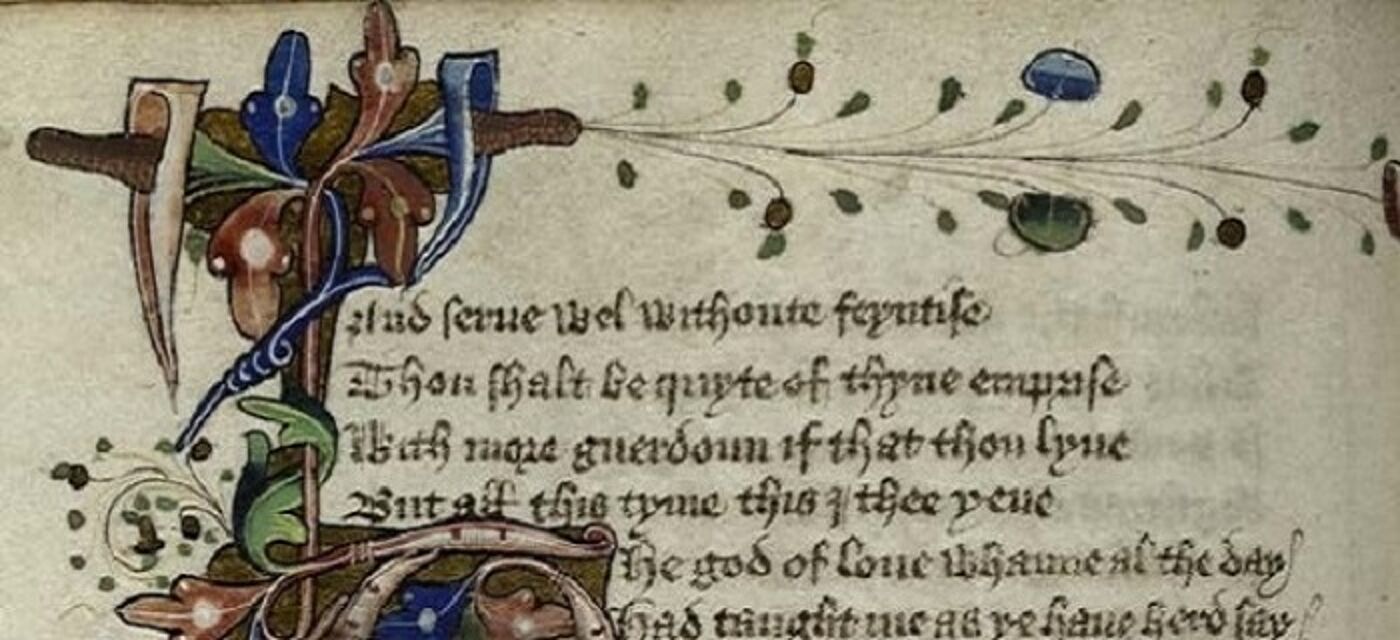 And serue wel withoute feyntise
Thou shalt be quyte of thyne emprise
With more guerdoun if that thou lyue
But all this tyme this I thee yeue
he god of loue whanne al the day
had taught me as ye haue herd say